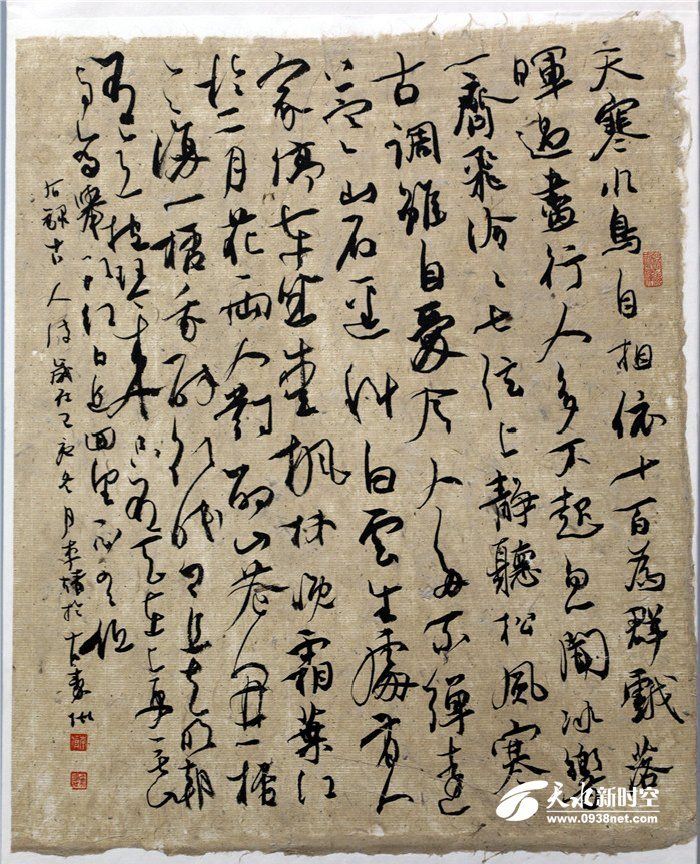 天寒水鳥自相依十百為群戲落
暉過盡行人多不起忽聞冰響
一齊飛泠々七弦上靜聽松風寒
古調雖自愛今人多不彈遠
上寒山石徑斜白雲生處有人
家停車坐愛楓林晚霜葉紅
於二月花兩人對酌山花開一杯
々復一杯我醉欲眠卿且去明朝
有意抱琴來只有天在上更無山
與齊舉頭紅日近回望白雲低
右録古人詩歲在冬月於古秦州
天水新时空
www.0938net.com